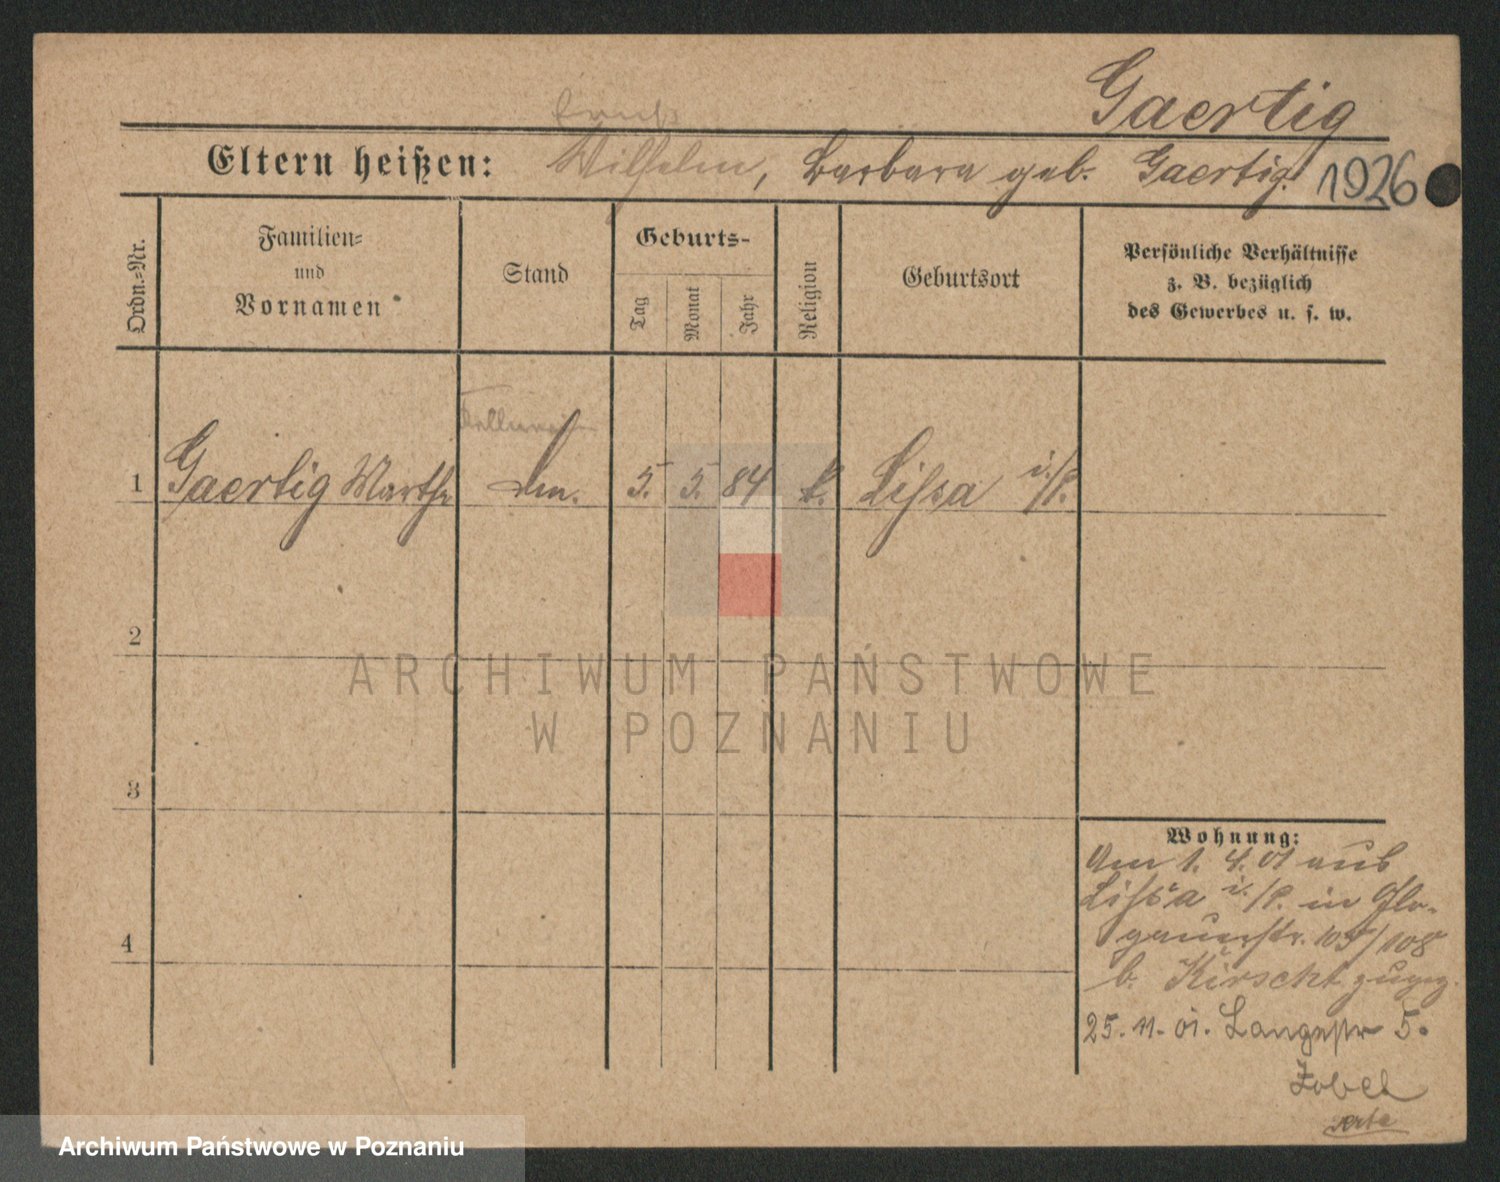 Gaertig
Ernst
Eltern heißen: Wilhelm, Barbara geb. Gaertig. 1926
Ordn.=Nr.
Familien=
und
Vornamen
Stand
Geburts-
Tag
Monat
Jahr
Religion
Geburtsort
Persönliche Verhältnisse
z. B. bezüglich
des Gewerbes u. s. w.
1 Gaertig Martha 5. 5. 84 k. Lissa i./P.
2
3
4
Wohnung:
Am 1. 4. 01 aus
Lissa i./P. in Glo-
gauerstr. 107/108
b. Kirscht zugez.
25. 11. 01. Langestr 5.
Zobel
ARCHIWUM PAŃSTWOWE
W POZNANIU
Archiwum Państwowe w Poznaniu